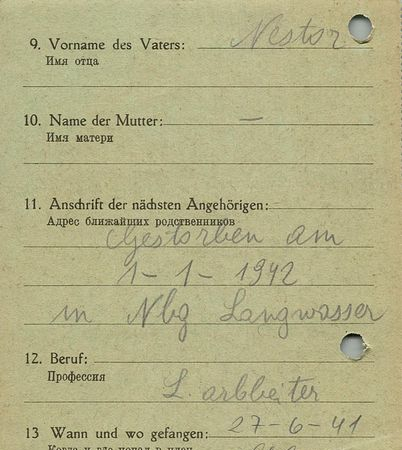 9. Vorname des Vaters: Nestor
Имя отца
10. Name der Mutter: —
Имя матери
11. Anschrift der nächsten Angehörigen:
Адрес ближайших родственников
Gestorben am
1-1-1942
in Nbg Langwasser
12. Beruf:
Профессия
L. arbbeiter
13 Wann und wo gefangen: 27-6-41